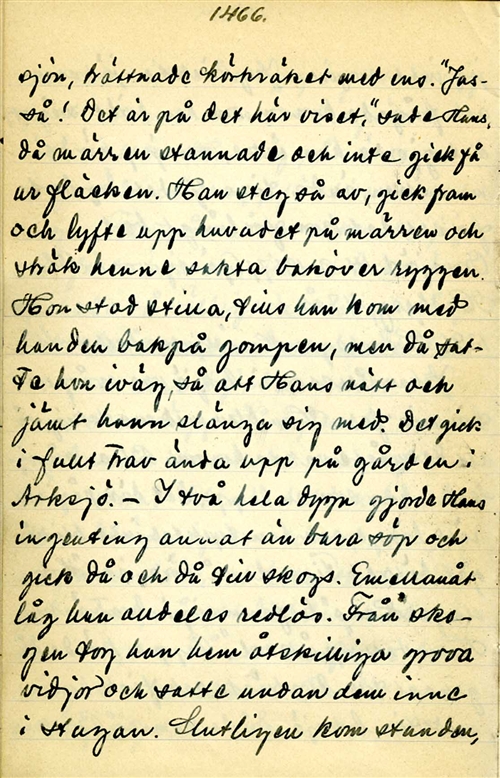 1466.
sjön, tråttnade körkräket med ens. "Jas-
så! Det är på det här viset," sade Hans,
då märren stannade och inte gick få
ur fläcken. Han steg så av, gick fram
och lyfte upp huvudet på märren och
strök henne sakta baköver ryggen.
Hon stod stilla, tills han kom med
handen bakpå gompen, men då sat-
te hon iväg, så att Hans nätt och
jämt hann slänga sig med. Det gick
i fullt trav ända upp på gården i
Arksjö. – I två hela dygn gjorde Hans
ingenting annat än bara söp och
gick då och då till skogs. Emellanåt
låg han alldeles redlös. Från sko-
gen tog han hem åtskilliga grova
vidjor och satte undan dem inne
i stugan. Slutligen kom stunden,